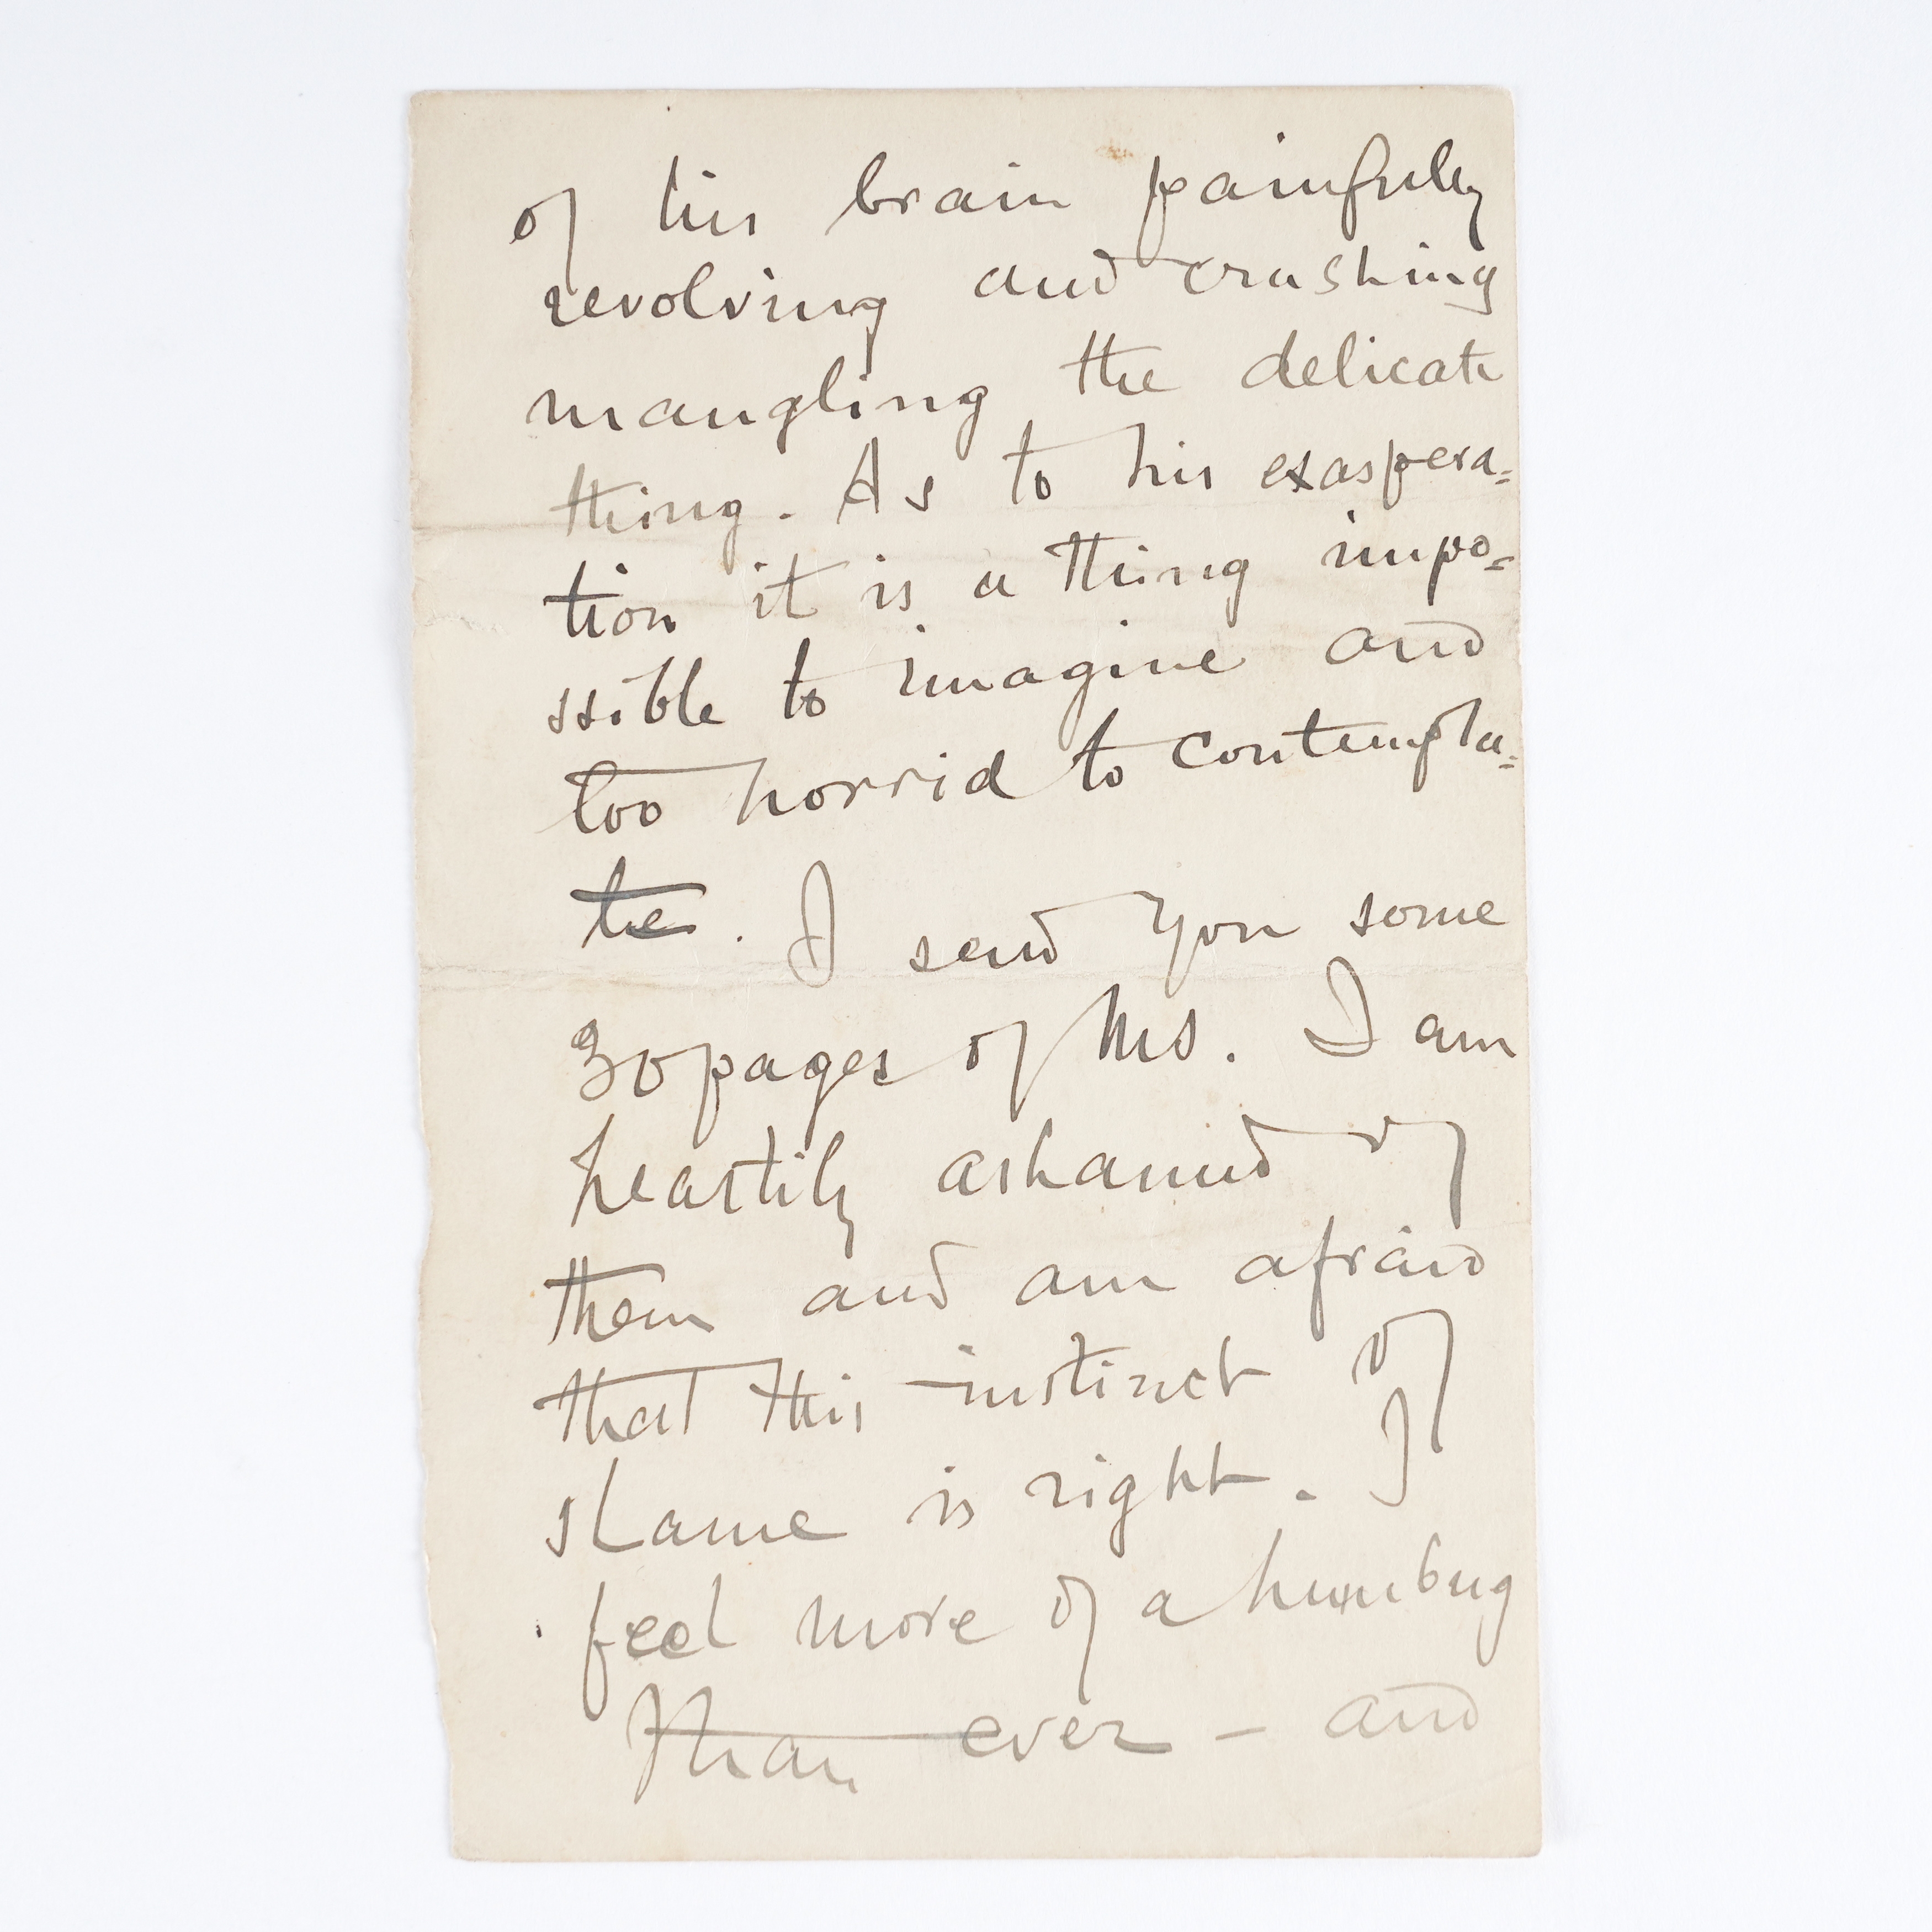 of his brain painfully
revolving and crushing
mangling the delicate
thing. As to his exaspera=
tion it is a thing impo=
ssible to imagine and
too horrid to contempla=
te. I send you some
30 pages of MS. I am
heartily ashamed of
them and am afraid
that this instinct of
shame is right. I
feel more of a humbug
than ever – and